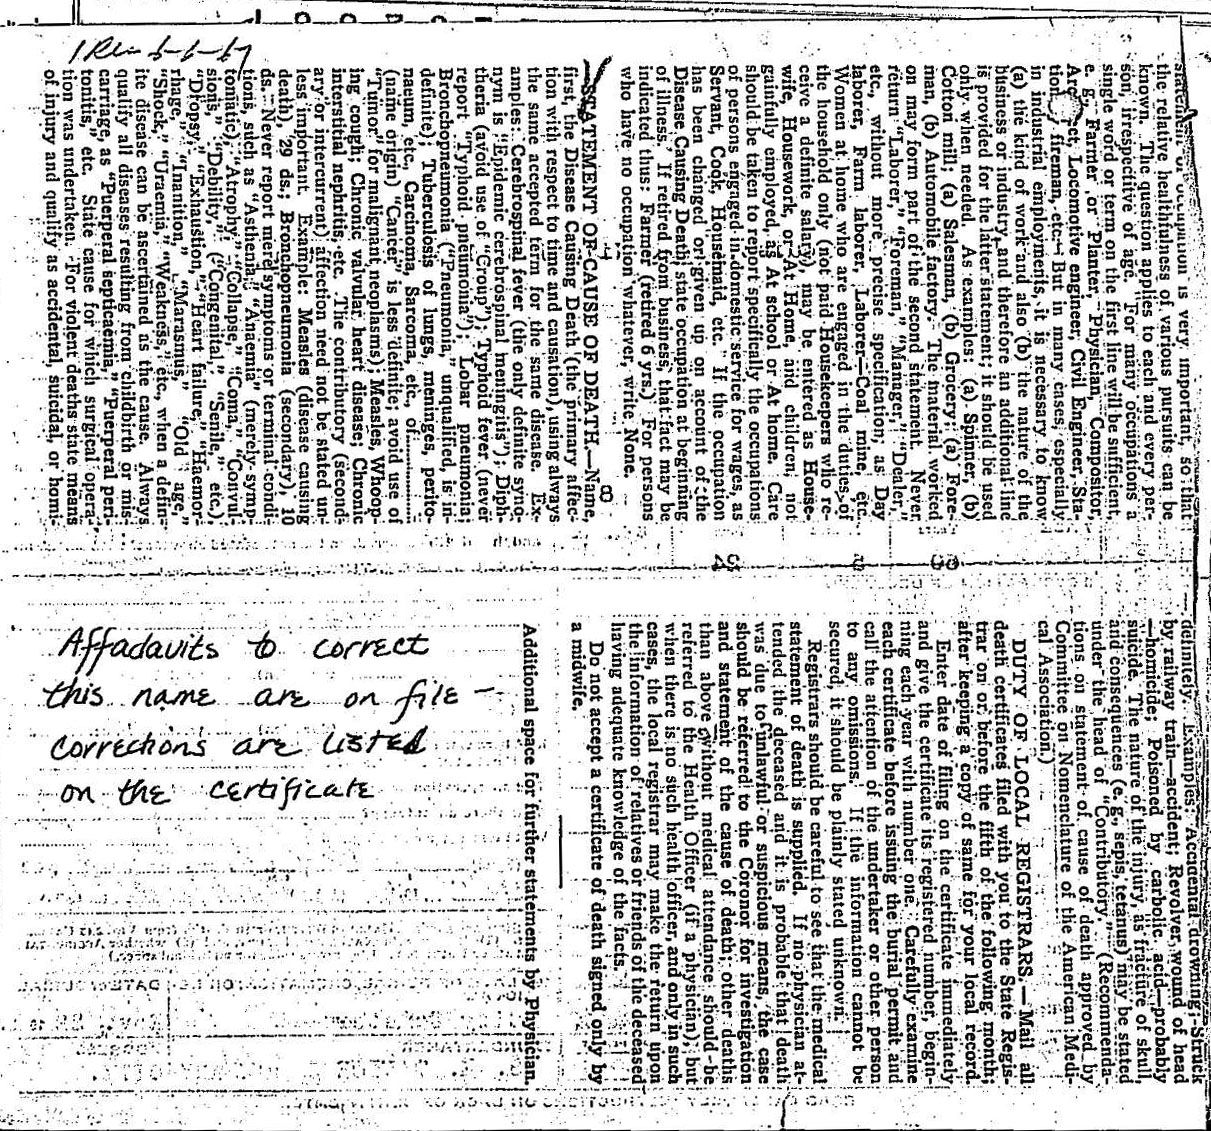 Statement of occupation is very important, so that
the relative healthfulness of various pursuits can be
known. The question applies to each and every per-
son, irrespective of age. For many occupations a
single word or term on the first line will be sufficient,
e. g., Farmer or Planter, Physician, Compositor,
Architect, Locomotive engineer, Civil Engineer, Sta-
tionary fireman, etc. But in many cases, especially
in industrial employments, it is necessary to know
(a) the kind of work and also (b) the nature of the
business or industry, and therefore an additional line
is provided for the latter statement; it should be used
only when needed. As examples: (a) Spinner, (b)
Cotton mill; (a) Salesman, (b) Grocery; (a) Fore-
man, (b) Automobile factory. The material worked
on may form part of the second statement. Never
return "Laborer," "Foreman," "Manager," "Dealer,"
etc., without more precise specification, as Day
laborer, Farm laborer, Laborer—Coal mine, etc.
Women at home who are engaged in the duties of
the household only (not paid Housekeepers who re-
ceive a definite salary), may be entered as House-
wife, Housework, or At Home, and children, not
gainfully employed, as At school or At home. Care
should be taken to report specifically the occupations
of persons engaged in domestic service for wages, as
Servant, Cook, Housemaid, etc. If the occupation
has been changed or given up on account of the
Disease Causing Death, state occupation at beginning
of illness. If retired from business, that fact may be
indicated thus: Farmer (retired 6 yrs.) For persons
who have no occupation whatever, write None.
STATEMENT OF CAUSE OF DEATH.—Name,
first, the Disease Causing Death (the primary affec-
tion with respect to time and causation), using always
the same accepted term for the same disease. Ex-
amples: Cerebrospinal fever (the only definite syno-
nym is "Epidemic cerebrospinal meningitis"); Diph-
theria (avoid use of "Croup"); Typhoid fever (never
report "Typhoid pneumonia"); Lobar pneumonia;
Bronchopneumonia ("Pneumonia," unqualified, is in-
definite); Tuberculosis of lungs, meninges, perito-
naeum, etc., Carcinoma, Sarcoma, etc., of
(name origin) "Cancer" is less definite; avoid use of
"Tumor" for malignant neoplasms); Measles, Whoop-
ing cough; Chronic valvular heart disease; Chronic
interstitial nephritis, etc. The contributory (second-
ary or intercurrent) affection need not be stated un-
less important. Example: Measles (disease causing
death), 29 ds.; Bronchopneumonia (secondary), 10
ds. Never report mere symptoms or terminal condi-
tions, such as "Asthenia," "Anaemia" (merely symp-
tomatic), "Atrophy," "Collapse," "Coma," "Convul-
sions," "Debility," ("Congenital," "Senile," etc.)
"Dropsy," "Exhaustion," "Heart failure," "Haemor-
rhage," "Inanition," "Marasmus," "Old age,"
"Shock," "Uraemia," "Weakness," etc., when a defin-
ite disease can be ascertained as the cause. Always
qualify all diseases resulting from childbirth or mis-
carriage, as "Puerperal septicaemia," "Puerperal peri-
tonitis," etc. State cause for which surgical opera-
tion was undertaken. For violent deaths state means
of injury and qualify as accidental, suicidal, or homi-
definitely. Examples: Accidental drowning; Struck
by railway train—accident; Revolver wound of head
—homicide; Poisoned by carbolic acid—probably
suicide. The nature of the injury, as fracture of skull,
and consequences (e. g., sepsis, tetanus) may be stated
under the head of "Contributory." (Recommenda-
tions on statement of cause of death approved by
Committee on Nomenclature of the American Medi-
cal Association.)
DUTY OF LOCAL REGISTRARS.—Mail all
death certificates filed with you to the State Regis-
trar on or before the fifth of the following month,
after keeping a copy of same for your local record.
Enter date of filing on the certificate immediately
and give the certificate its registered number, begin-
ning each year with number one. Carefully examine
each certificate before issuing the burial permit and
call the attention of the undertaker or other person
to any omissions. If the information cannot be
secured, it should be plainly stated unknown.
Registrars should be careful to see that the medical
statement of death is supplied. If no physician at-
tended the deceased and it is probable that death
was due to unlawful or suspicious means, the case
should be referred to the Coroner for investigation
and statement of the cause of death; other deaths
than above without medical attendance should be
referred to the Health Officer (if a physician); but
when there is no such health officer, and only in such
cases, the local registrar may make the return upon
the information of relatives or friends of the deceased
having adequate knowledge of the facts.
Do not accept a certificate of death signed only by
a midwife.
Additional space for further statements by Physician.
Affadavits to correct
this name are on file —
corrections are listed
on the certificate